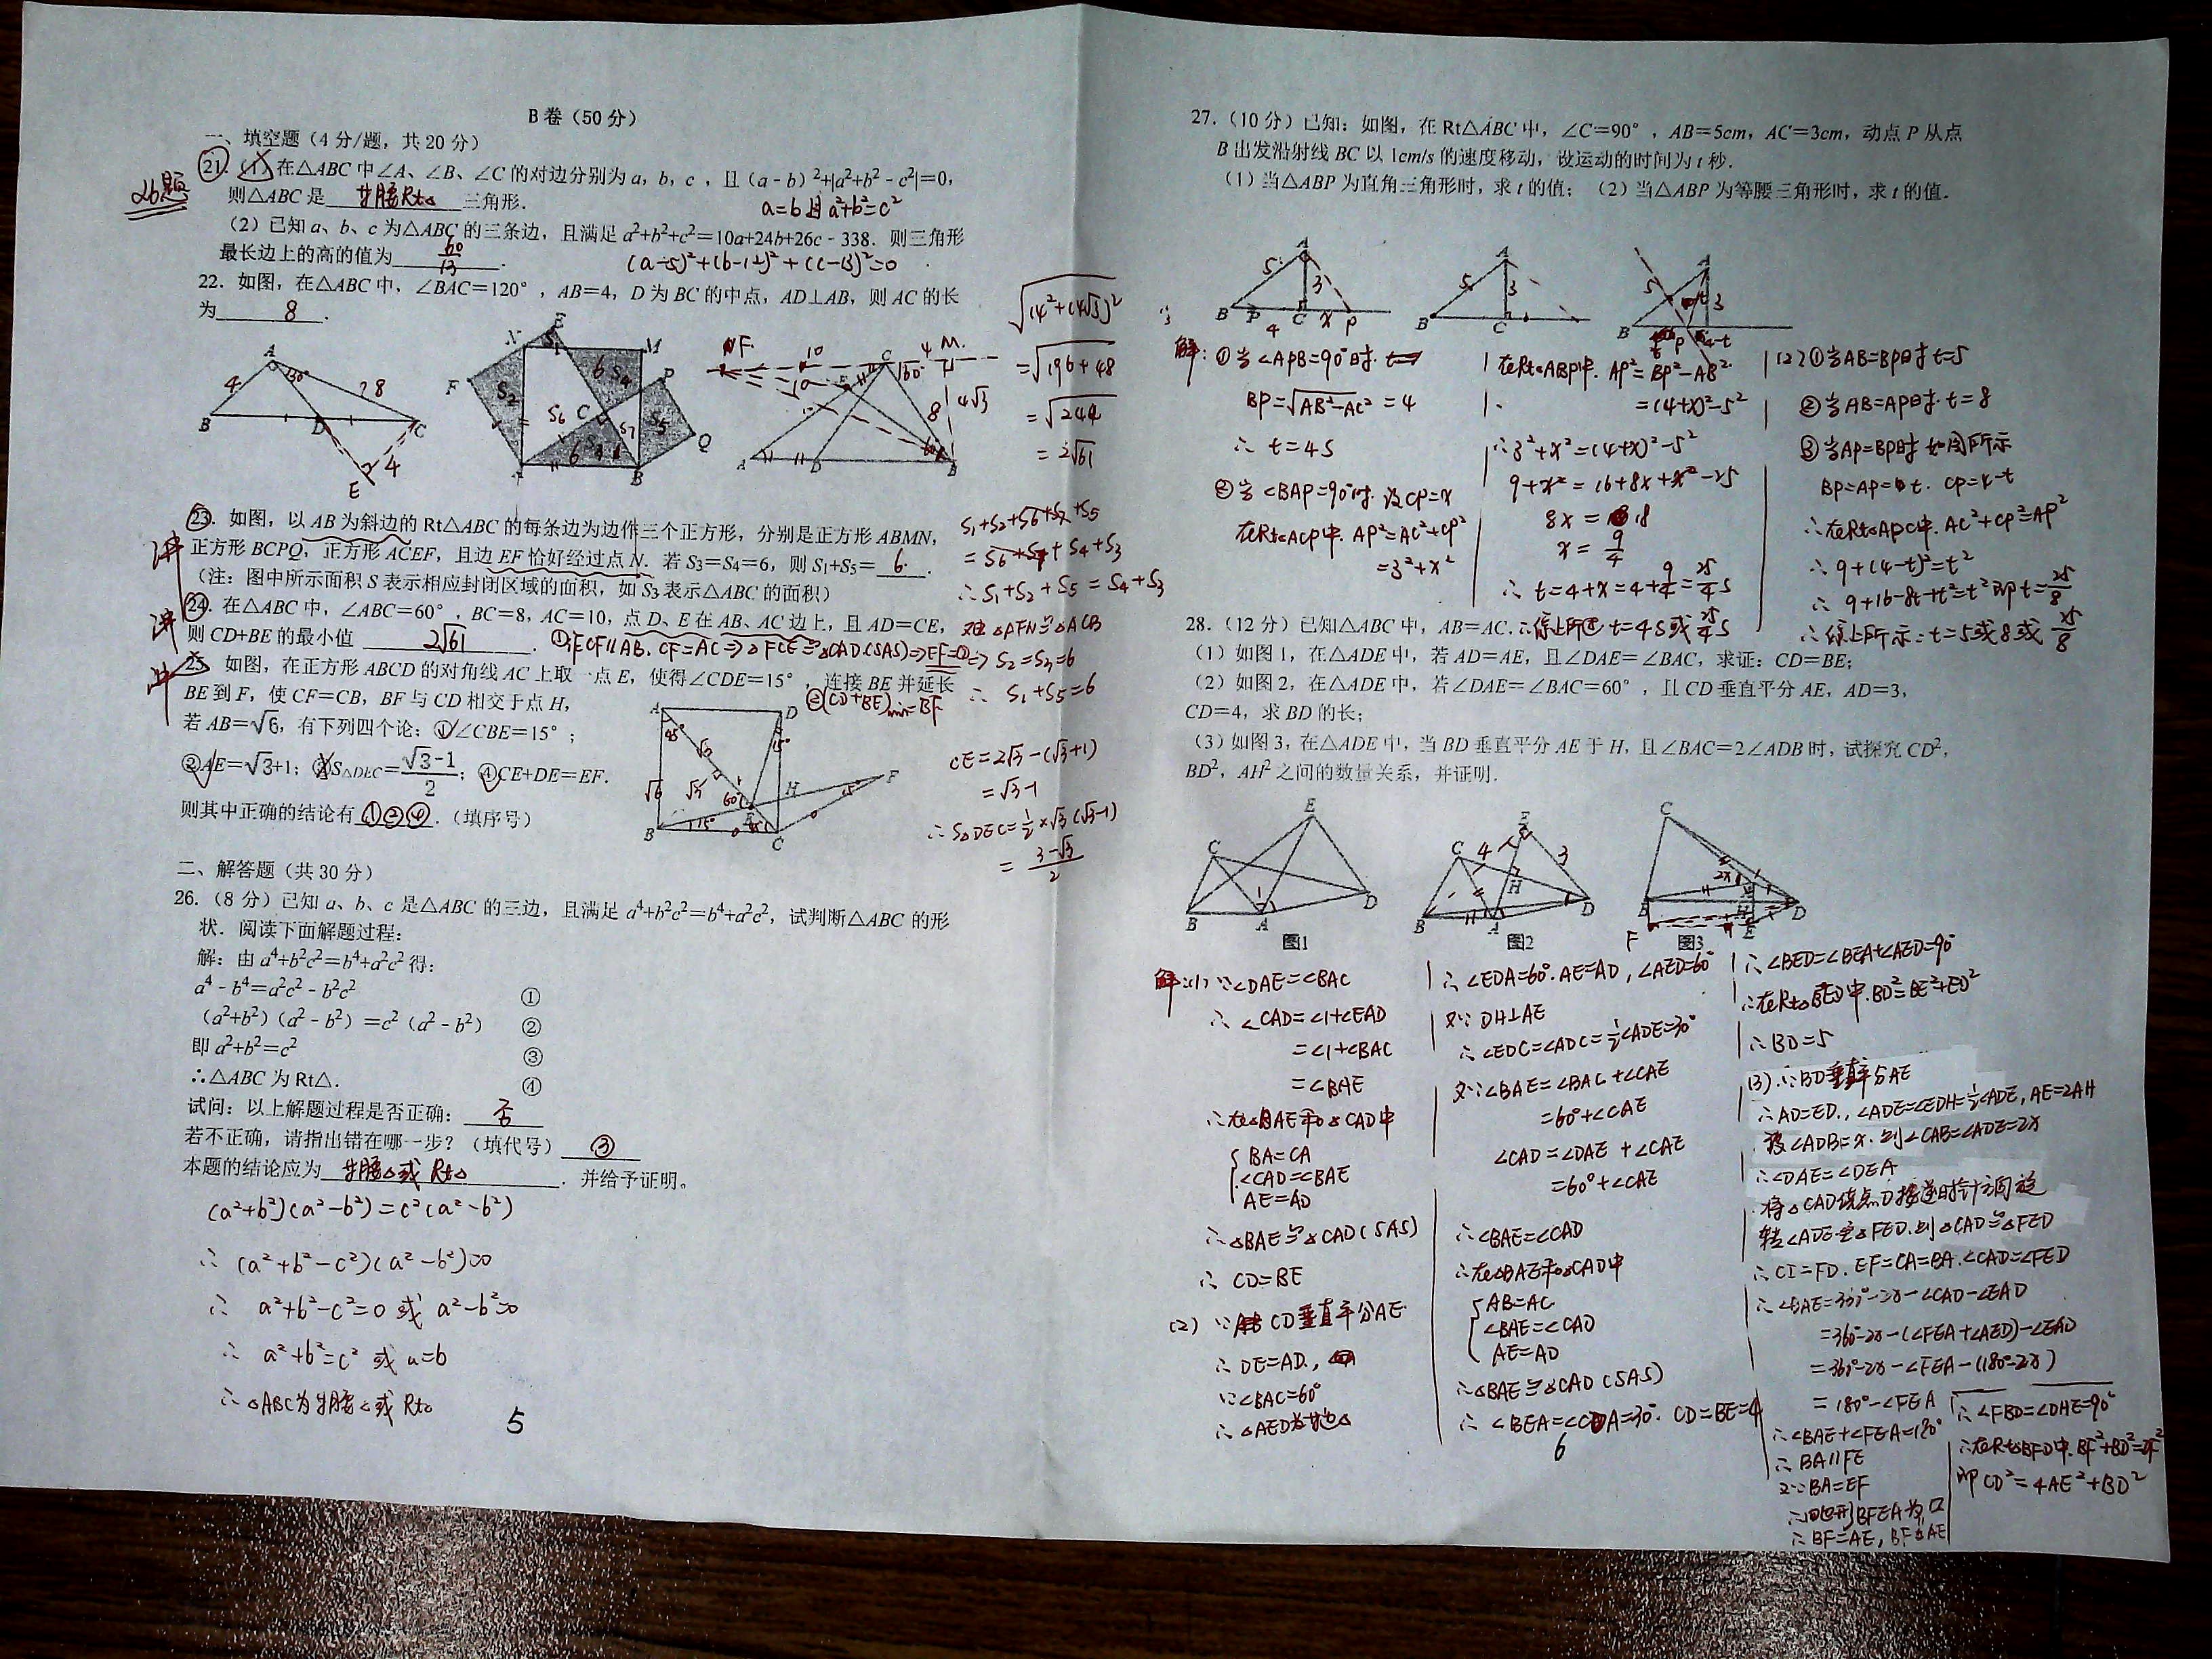 B卷（50分）
一、填空题（4分/题，共20分）
26题
21.（1）在△ABC中∠A、∠B、∠C的对边分别为a，b，c，且（a-b）²+|a²+b²-c²|=0，
则△ABC是 等腰Rt△ 三角形.
a=b且a²+b²=c²
（2）已知a、b、c为△ABC的三条边，且满足a²+b²+c²=10a+24b+26c-338．则三角形
最长边上的高的值为 60/13 .
(a-5)²+(b-12)²+(c-13)²=0
22．如图，在△ABC中，∠BAC=120°，AB=4，D为BC的中点，AD⊥AB，则AC的长
为 8 .
√(14²+(4√3)²)
=√(196+48)
=√244
=2√61
讲
23．如图，以AB为斜边的Rt△ABC的每条边为边作三个正方形，分别是正方形ABMN，
正方形BCPQ，正方形ACEF，且边EF恰好经过点N．若S₃=S₄=6，则S₁+S₅= 6 .
（注：图中所示面积S表示相应封闭区域的面积，如S₃表示△ABC的面积）
S₁+S₂+S₆+S₇+S₅
=S₆+S₇+S₄+S₃
∴S₁+S₂+S₅=S₄+S₃
△AFN≌△ACB
⇒S₂=S₃=6
∴S₁+S₅=6
讲
24．在△ABC中，∠ABC=60°，BC=8，AC=10，点D、E在AB、AC边上，且AD=CE，
则CD+BE的最小值 2√61 .
①作CF∥AB，CF=AC⇒△FCE≌△CAD(SAS)⇒EF=CD
②(CD+BE)min=BF
讲
25 如图，在正方形ABCD的对角线AC上取一点E，使得∠CDE=15°，连接BE并延长
BE到F，使CF=CB，BF与CD相交于点H，
若AB=√6，有下列四个论：①∠CBE=15°；
②AE=√3+1；③S△DEC=(√3-1)/2；④CE+DE=EF.
则其中正确的结论有 ①②④ .（填序号）
CE=2√3-(√3+1)
=√3-1
∴S△DEC=½×√3(√3-1)
=(3-√3)/2
二、解答题（共30分）
26.（8分）已知a、b、c是△ABC的三边，且满足a⁴+b²c²=b⁴+a²c²，试判断△ABC的形
状．阅读下面解题过程：
解：由a⁴+b²c²=b⁴+a²c²得：
a⁴-b⁴=a²c²-b²c² ①
（a²+b²）（a²-b²）=c²（a²-b²） ②
即a²+b²=c² ③
∴△ABC为Rt△. ④
试问：以上解题过程是否正确： 否
若不正确，请指出错在哪一步？（填代号） ③
本题的结论应为 等腰△或Rt△ ．并给予证明。
(a²+b²)(a²-b²)=c²(a²-b²)
∴(a²+b²-c²)(a²-b²)=0
∴a²+b²-c²=0或a²-b²=0
∴a²+b²=c²或a=b
∴△ABC为等腰△或Rt△
5
27.（10分）已知：如图，在Rt△ABC中，∠C=90°，AB=5cm，AC=3cm，动点P从点
B出发沿射线BC以1cm/s的速度移动，设运动的时间为t秒．
（1）当△ABP为直角三角形时，求t的值；（2）当△ABP为等腰三角形时，求t的值．
解：①当∠APB=90°时.
BP=√(AB²-AC²)=4
∴t=4s
②当∠BAP=90°时，设CP=x
在Rt△ACP中，AP²=AC²+CP²
=3²+x²
在Rt△ABP中，AP²=BP²-AB²
=(4+x)²-5²
∴3²+x²=(4+x)²-5²
9+x²=16+8x+x²-25
8x=18
x=9/4
∴t=4+x=4+9/4=25/4s
∴综上所述t=4s或25/4s
(2)①当AB=BP时t=5
②当AB=AP时t=8
③当AP=BP时如图所示
BP=AP=t，CP=4-t
∴在Rt△APC中，AC²+CP²=AP²
∴9+(4-t)²=t²
∴9+16-8t+t²=t²即t=25/8
∴综上所示：t=5或8或25/8
28.（12分）已知△ABC中，AB=AC.
（1）如图1，在△ADE中，若AD=AE，且∠DAE=∠BAC，求证：CD=BE；
（2）如图2，在△ADE中，若∠DAE=∠BAC=60°，且CD垂直平分AE，AD=3，
CD=4，求BD的长；
（3）如图3，在△ADE中，当BD垂直平分AE于H，且∠BAC=2∠ADB时，试探究CD²，
BD²，AH²之间的数量关系，并证明.
图1
图2
图3
解：(1)∵∠DAE=∠BAC
∴∠CAD=∠1+∠EAD
=∠1+∠BAC
=∠BAE
∴在△BAE和△CAD中
BA=CA
∠CAD=∠BAE
AE=AD
∴△BAE≌△CAD(SAS)
∴CD=BE
(2)∵CD垂直平分AE
∴DE=AD，
∵∠BAC=60°
∴△AED为等边△
∴∠EDA=60°，AE=AD，∠AED=60°
又∵DH⊥AE
∴∠EDC=∠ADC=½∠ADE=30°
又∵∠BAE=∠BAC+∠CAE
=60°+∠CAE
∠CAD=∠DAE+∠CAE
=60°+∠CAE
∴∠BAE=∠CAD
∴在△BAE和△CAD中
AB=AC
∠BAE=∠CAD
AE=AD
∴△BAE≌△CAD(SAS)
∴∠BEA=∠CDA=30°，CD=BE=4
6
∴∠BED=∠BEA+∠AED=90°
∴在Rt△BED中，BD²=BE²+ED²
∴BD=5
(3)∵BD垂直平分AE
∴AD=ED，∠ADB=∠EDH=½∠ADE，AE=2AH
设∠ADB=x，则∠CAB=∠ADE=2x
∴∠DAE=∠DEA
将△CAD绕点D按逆时针方向旋
转∠ADE至△FED，则△CAD≌△FED
∴CD=FD，EF=CA=BA，∠CAD=∠FED
∴∠BAE=360°-2x-∠CAD-∠EAD
=360°-2x-(∠FEA+∠AED)-∠EAD
=360°-2x-∠FEA-(180°-2x)
=180°-∠FEA
∴∠BAE+∠FEA=180°
∴BA∥FE
又∵BA=EF
∴四边形BFEA为▱
∴BF=AE，BF∥AE
∴∠FBD=∠DHE=90°
∴在Rt△BFD中，BF²+BD²=DF²
即CD²=4AE²+BD²